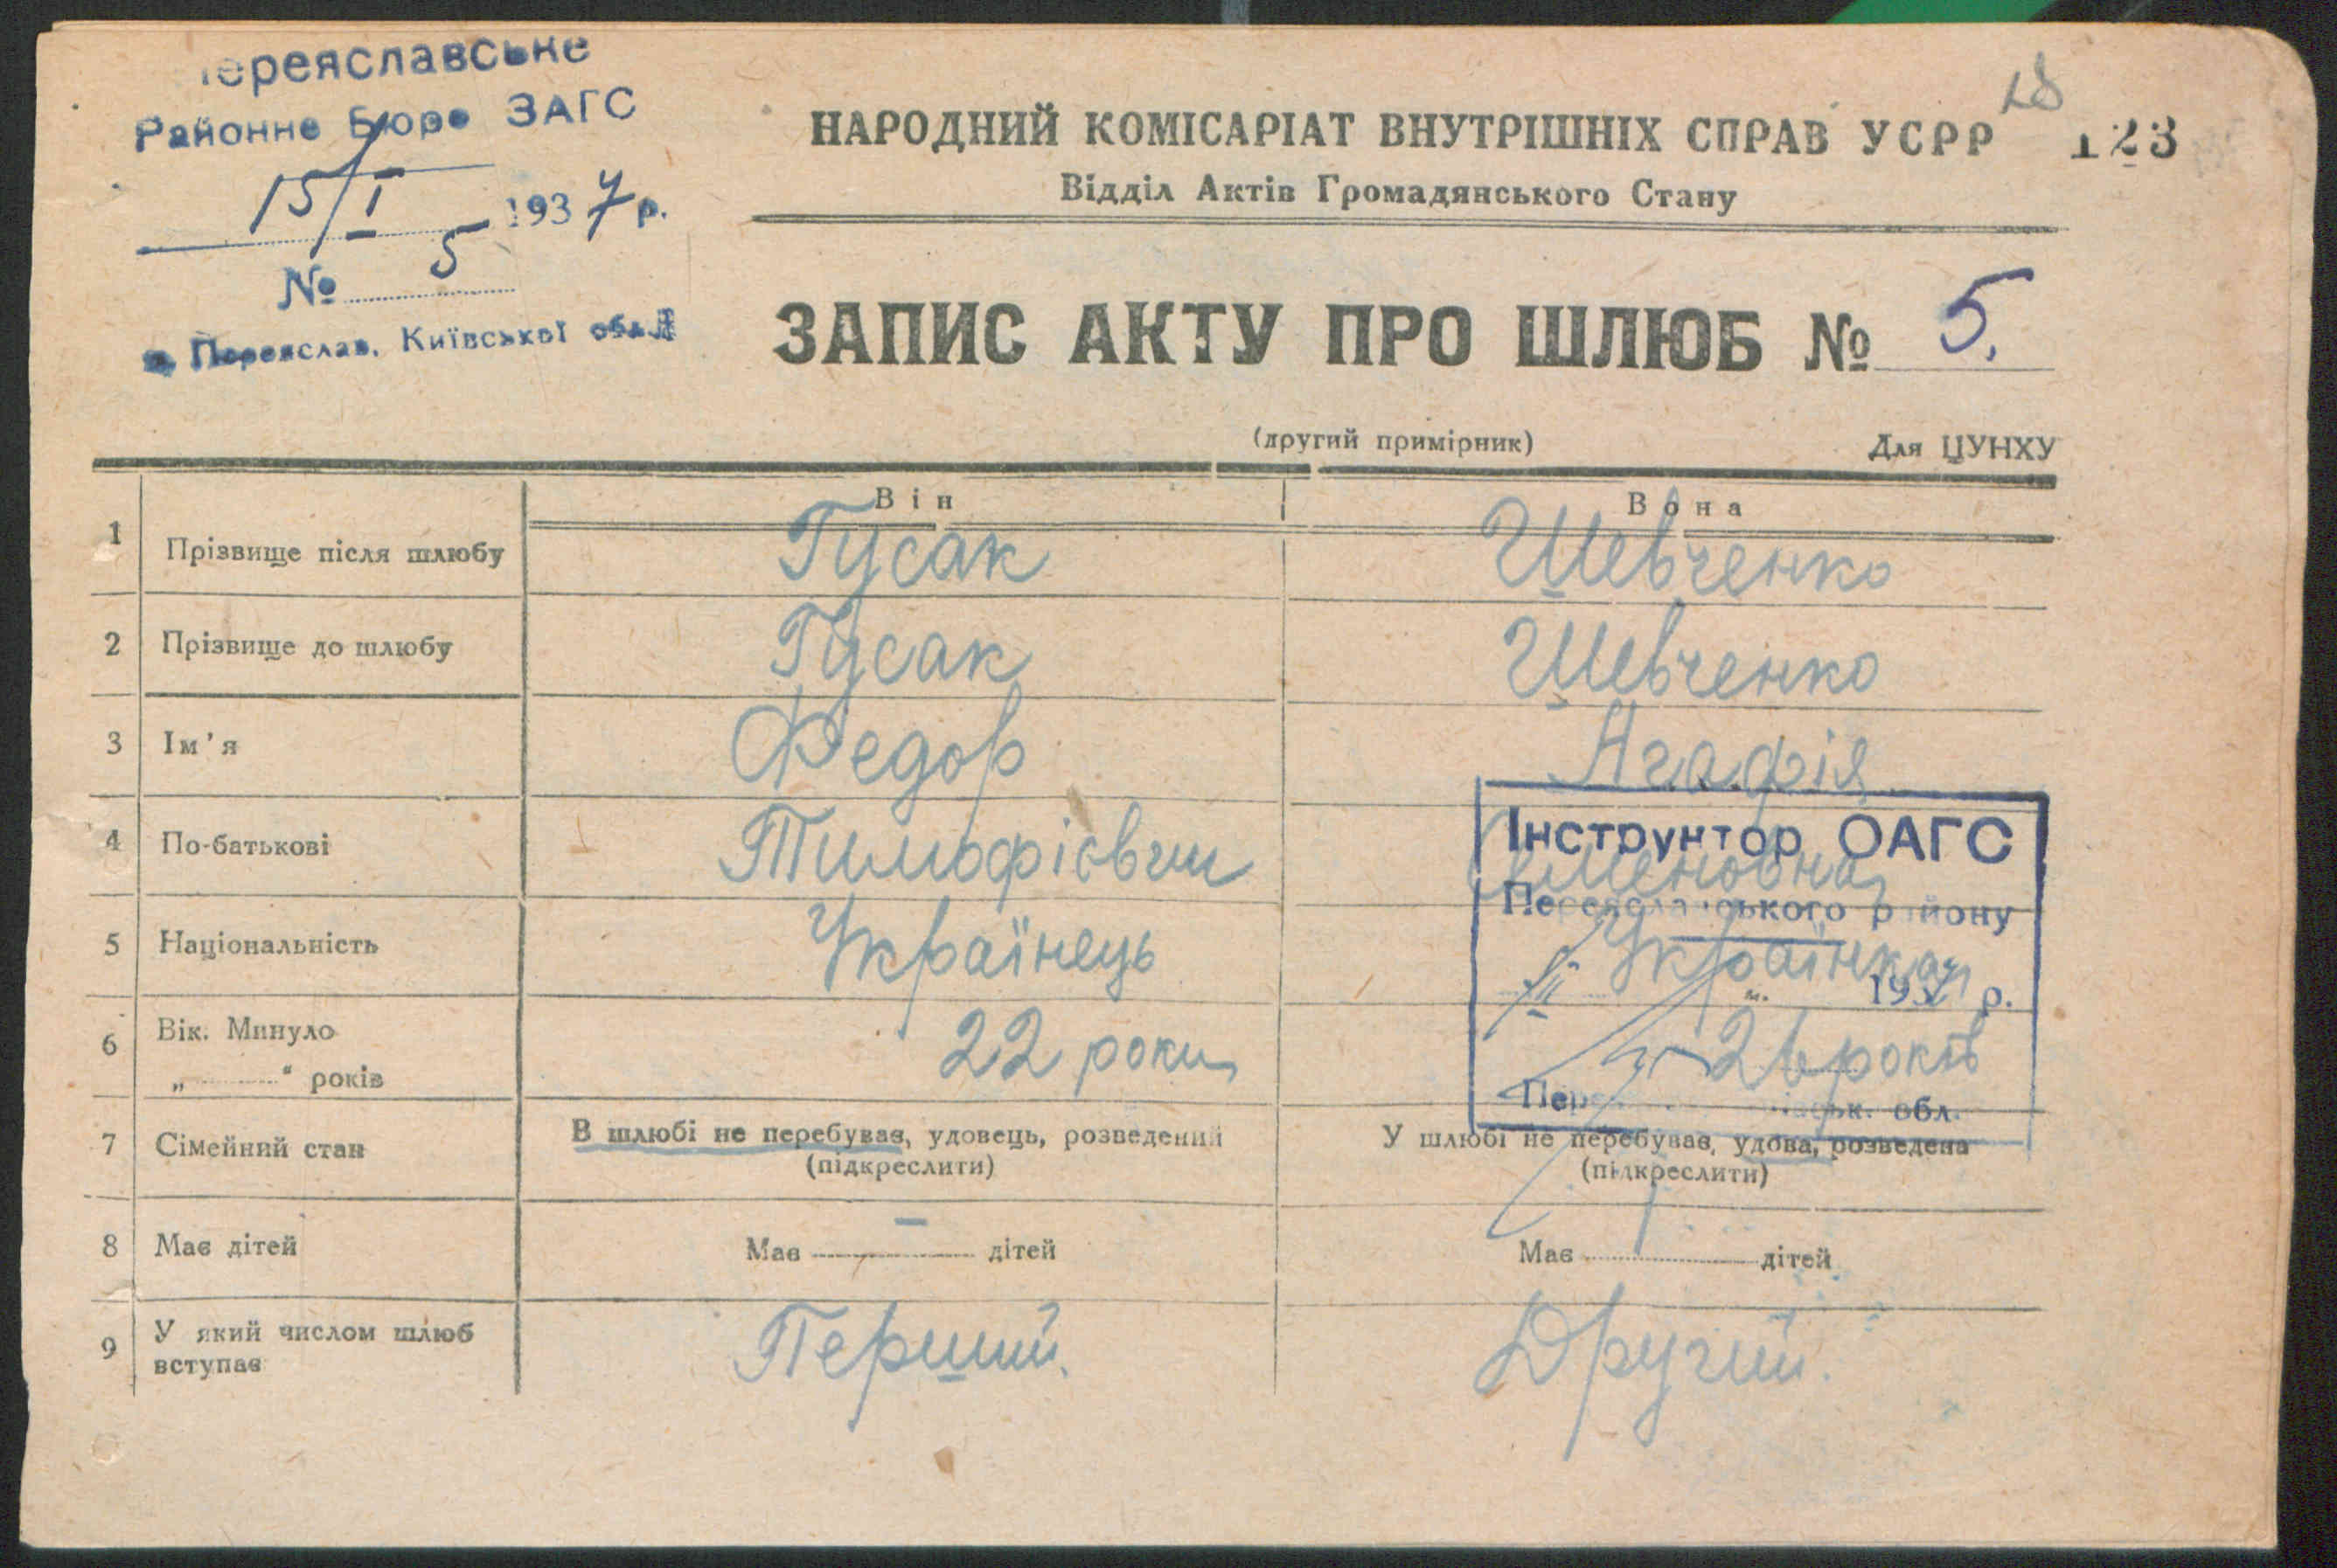 Переяславське
Районне Бюро ЗАГС
15/I 1937 р.
№ 5
м. Переяслав, Київської обл.
18
НАРОДНИЙ КОМІСАРІАТ ВНУТРІШНІХ СПРАВ УСРР 123
Відділ Актів Громадянського Стану
ЗАПИС АКТУ ПРО ШЛЮБ № 5.
(другий примірник) Для ЦУНХУ
Він Вона
1 Прізвище після шлюбу Гусак Шевченко
2 Прізвище до шлюбу Гусак Шевченко
3 Ім'я Федор Агафія
4 По-батькові Тимофієвич Семеновна
5 Національність Українець Українка
6 Вік. Минуло 22 роки 26 років
„ " років
7 Сімейний стан В шлюбі не перебував, удовець, розведений У шлюбі не перебував, удова, розведена
(підкреслити) (підкреслити)
8 Має дітей Має – дітей Має 1 дітей
9 У який числом шлюб Перший. Другий.
вступає
Інструктор ОАГС
Переяславського району
193 р.
обл.